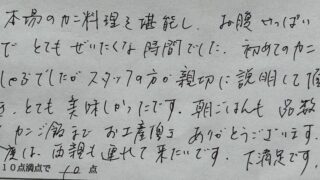 本場のカニ料理を堪能し、お腹いっぱい
で とてもぜいたくな時間でした。初めてのカニ
しゃぶでしたがスタッフの方が親切に説明して頂
き、とても美味しかったです。朝ごはんも 品数
カニ飯まで お土産
ありがとうございます。
度は、両親も連れて来たいです。大満足です。
10点満点で 10 点